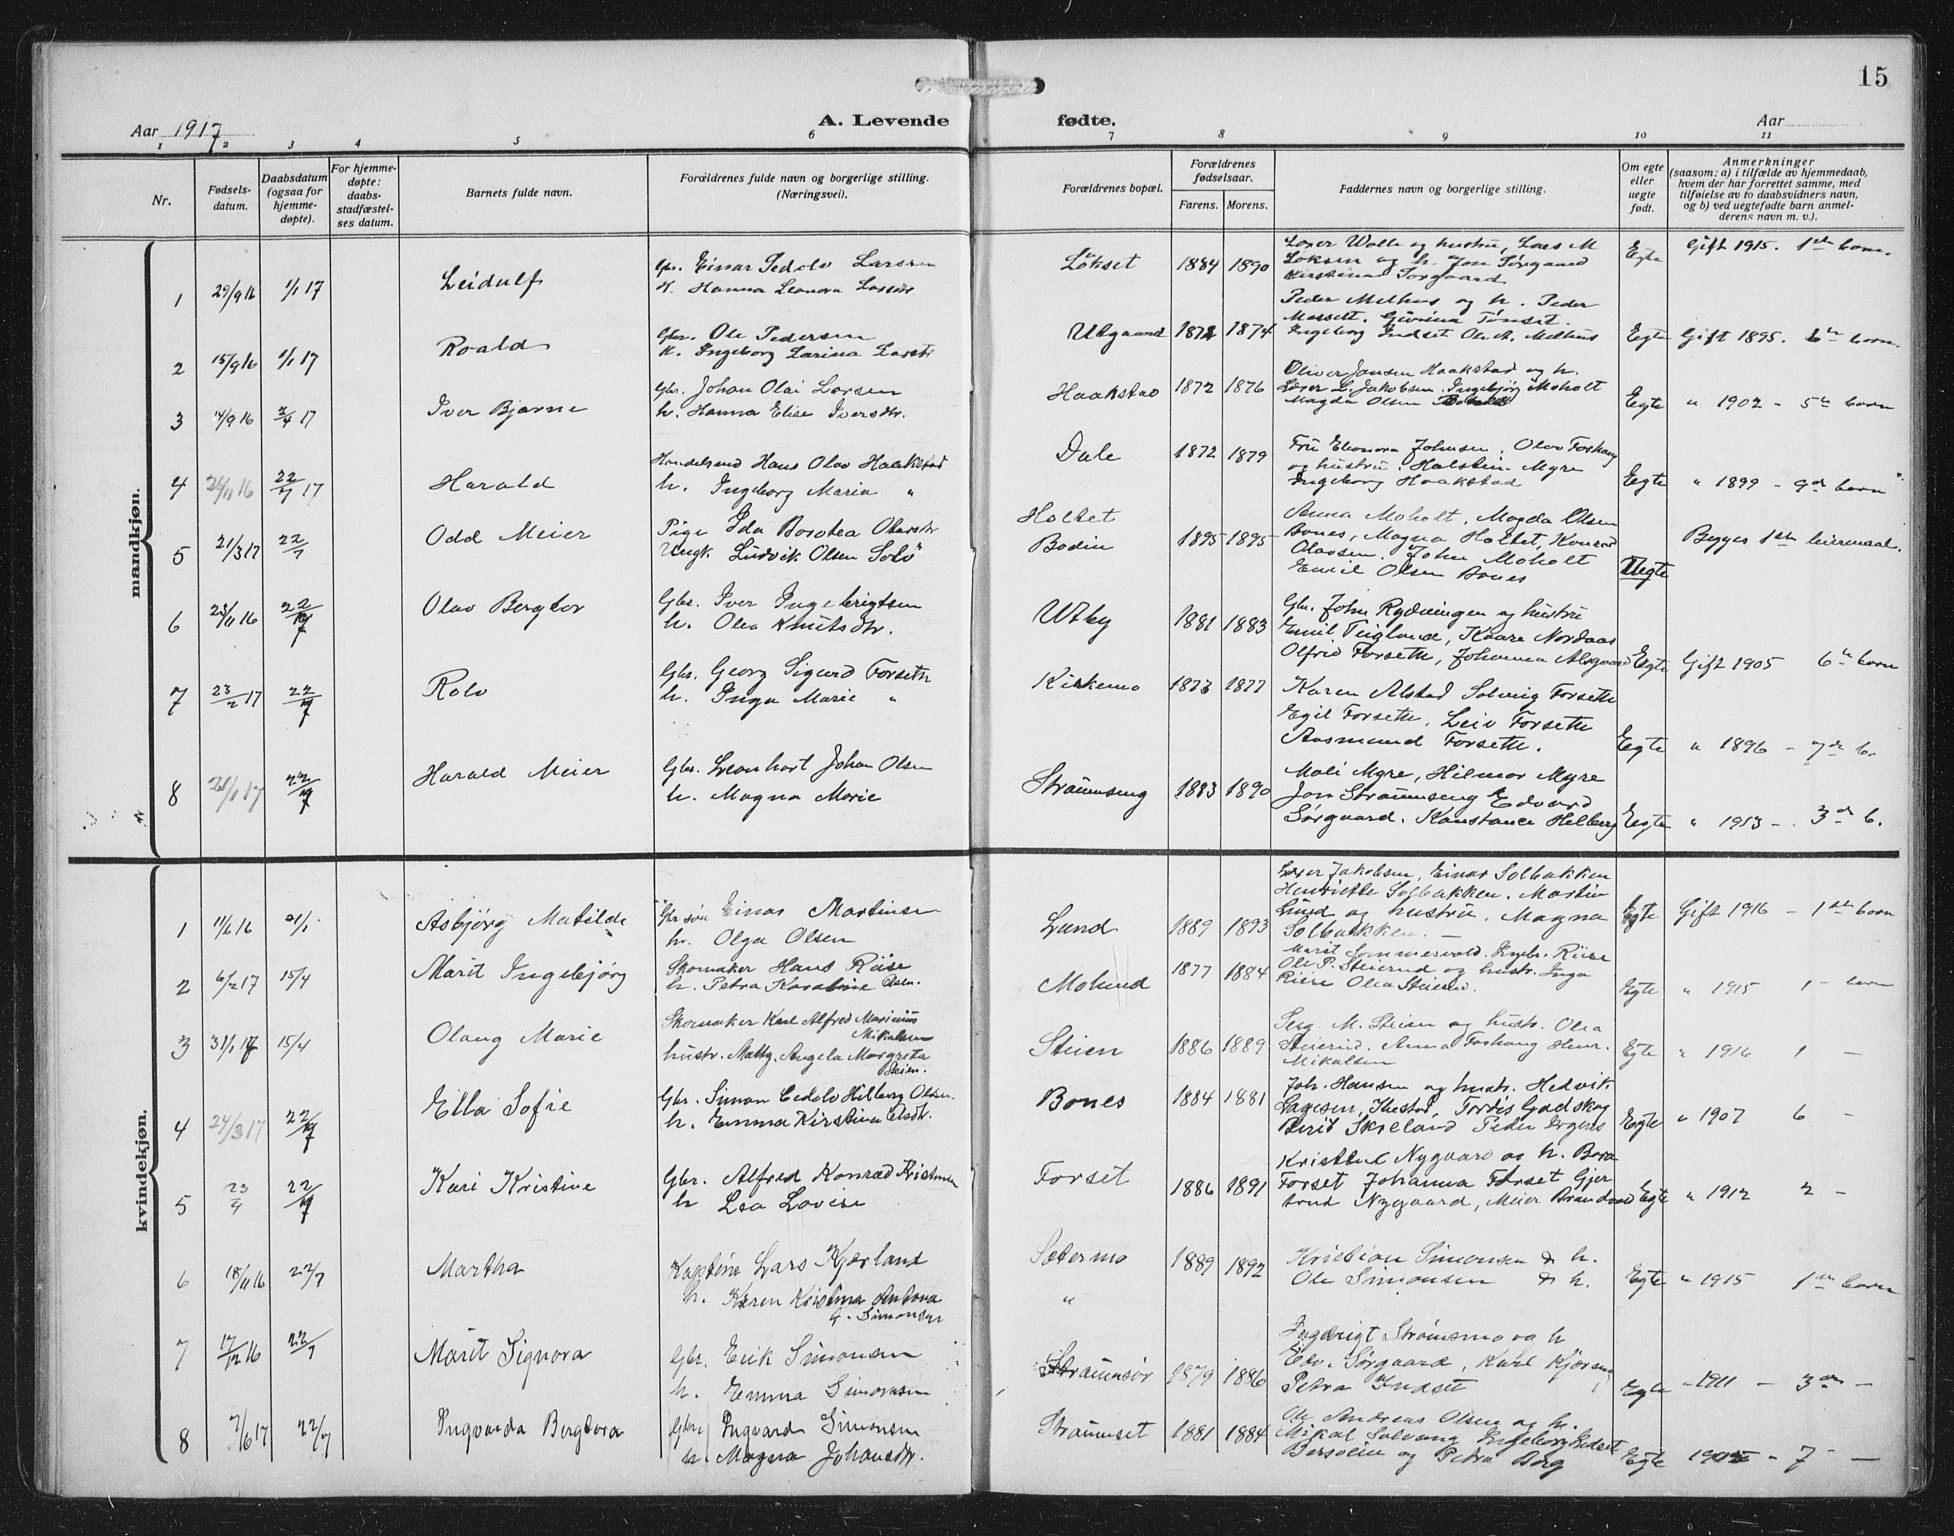 15
Aar 1917
A. Levende fødte.
Aar
1 2 3 4 5 6 7 8 9 10 11
Nr.
Fødsels-
datum.
Daabsdatum
(ogsaa for
hjemme-
døpte).
For hjemme-
døpte:
daabs-
stadfæstel-
ses datum.
Barnets fulde navn.
Forældrenes fulde navn og borgerlige stilling.
(Næringsvei).
Forældrenes bopæl.
Forældrenes
fødselsaar.
Farens. Morens.
Faddernes navn og borgerlige stilling.
Om egte
eller
uegte
født.
Anmerkninger
(saasom: a) i tilfælde av hjemmedaab,
hvem der har forrettet samme, med
tilføielse av to daabsvidners navn,
og b) ved uegtefødte barn anmel-
derens navn m. v.).
mandkjøn.
1 29/9 16 1/1 17 Leidulf
Gbr. Einar Pedolv Larsen
H. Hanna Leonora
Løkset 1884 1890
Loser Wolle og hustru, Lars M
Løksen og h. Jon Sørgaard
Kirstina Sørgaard
Egte Gift 1915. 1ste barn.
2 15/9 16 1/1 17 Roald
Gbr. Ole Pedersen
h. Ingeborg Larina Larsdtr
Utgaard 1872 1874
Peder Melhus og h. Peder
Massett. Tønset.
Ingeborg Indset Ole A. Melhus
Egte Gift 1895. 6te barn.
3 14/9 16 2/4 17 Iver Bjarne
Gbr. Johan Olai Larsen
h. Hanna Elise Iversdtr.
Haakstad 1872 1876
Oliver Jansen Haakstad og h.
Loser L. Jakobsen. Ingebjørg Moholt
Magda Olsen
Egte " 1902 - 5te barn
4 22/7 17 Harald
Handelsmand Hans Olav Haakstad
h. Ingeborg Maria "
Dale 1872 1879
Fru Eleonora Johnsen, Olav Forhaug
og hustru. Halstein Myre
Ingeborg Haakstad
Egte " 1899 - 9de barn
5 21/3 17 22/7 Odd Meier
Pige Ida Dorotea Olavsdtr
Ungk. Ludvik Olsen
Holtet
Bodin 1895 1895
Anna Moholt. Magda Olsen
Bones, Magna Holtet, Konrad
Olavsen. John Moholt
Emil Olsen Bones
Uegte Begges 1ste leiermaal.
6 23/11 16 22/7 Olav Bergtor
Gbr. Iver Ingebrigtsen
h. Olea Knutsdtr.
Utby 1881 1883
Gbr. John Rydningen og hustru
Emil Teigland, Kaare Nordaas
Olfrid Forseth, Johanna Alsgaard
Egte Gift 1905 6te barn
7 23/2 17 22/7 Rolv
Gbr. Georg Sigurd Forseth
h. Inga Marie "
Kirkemo 1873 1877
Karen Alstad Solveig Forseth
Egil Forseth, Leiv Forseth
Aasmund Forseth.
Egte " 1896 - 7de b.
8 22/7 Harald Meier
Gbr. Leonhart Johan Olsen
h. Magna Marie
Straumseng 1883 1890
Moli Myre, Hilmar Myre
Jon Straumseng Edvard
Sørgaard. Konstance Helberg
Egte " 1913 - 3de b.
kvindekjøn.
1 11/6 16 21/1 Asbjørg Matilde
Gbr.søn Einar Martinsen
h. Olga Olsen
Lund 1889 1893
Loser Jakobsen, Einar Solbakken
Henriette Solbakken. Martin
Lund og hustru. Magna
Solbakken. -
Egte Gift 1916 - 1ste barn
2 6/2 17 15/4 Marit Ingebjørg
Skomaker Hans Riise
h. Petra Karoline Olsen.
Molund 1877 1884
Marit Sommervold. Ingb. Riise
Ole P. Steiend og hustr. Inga
Riise Olea Steiend.
Egte " 1915 1 - barn
3 31/1 17 15/4 Olaug Marie
Skomaker Karl Alfred Marinius
Mikalsen
hustr. Mattg. Angela Margreta
Steien.
Steien 1886 1889
Serg. M. Steien og hustr. Olea
Steiend. Anna Foshaug Henr.
Mikalsen
Egte " 1916 1 -
4 24/3 17 22/7 Ella Sofie
Gbr. Simon Pedolv Hilberg Olsen
h. Emma Kirstina Olsdtr.
Bones 1884 1881
Joh. Hansen og hustr. Hedvik
Lagesen, Ihestad, Tordis Godskog
Berit Skoeland Peder Ergens
Egte " 1907 6 -
5 23/4 22/7 Kari Kristine
Gbr. Alfred Konrad Kristensen
h. Lea Lovise
Forset 1886 1891
Kristen Nygaard og h. Bera
Forset Johanna Forset Gjer
trud Nygaard, Meier Brandvold
Egte " 1912 2 -
6 18/11 16 22/7 Martha
Kaptein Lars Kjærland
h. Karen Kristina Antona
G. Simonsen
Setermo 1889 1892
"
Kristian Simonsen & h.
Ole Simonsen & h.
Egte " 1915 1ste barn
7 17/12 16 22/7 Marit Signora
Gbr. Erik Simonsen
h. Emma Simonsen
Straumsør 1879 1886
Ingebrigt Strømsmo og h
Edv. Sørgaard, Karl Kjørsung
Petra Indset
Egte - 1911 - 3de -
8 7/6 17 22/7 Ingvarda Bergtora
Gbr. Ingvard Simonsen
h. Magna Johansdtr.
Straumset 1881 1884
Ole Andreas Olsen og h.
Mikal Solvang Ingeborg Indset
Bersvein og Petra Berg
Egte 1905 - 7 -